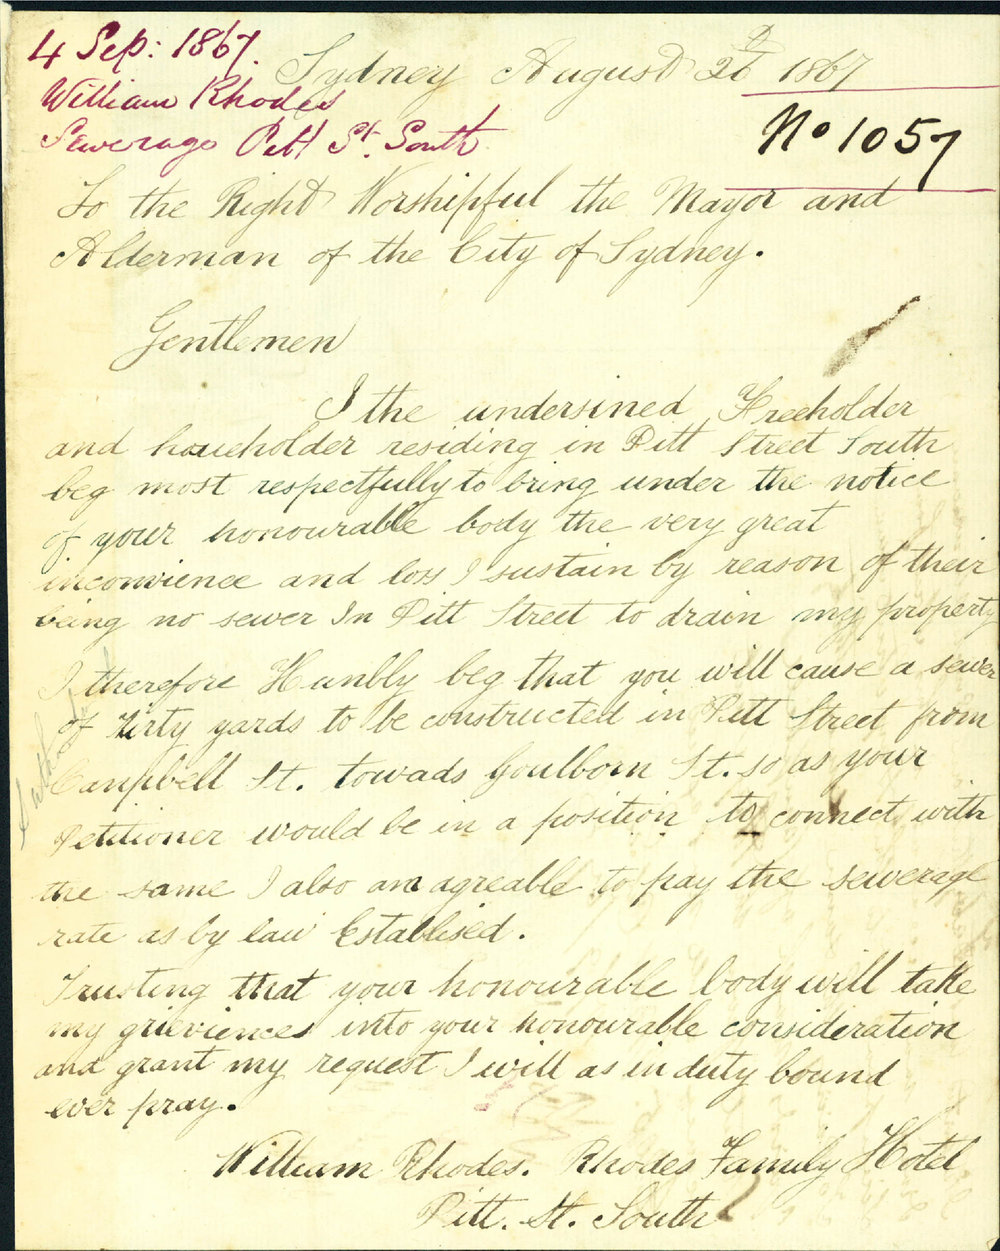 4 Sep: 1867.
William Rhodes
Sewerage Pitt St. South
Sydney August 26th 1867
No 1057
To the Right Worshipful the Mayor and
Alderman of the City of Sydney.
Gentlemen
I the undersined Freeholder
and houeholder residing in Pitt Street South
beg most respectfully to bring under the notice
of your honourable body the very great
inconvience and loss I sustain by reason of their
being no sewer In Pitt Street to drain my property
I therefore Humbly beg that you will cause a sewer
of thirty yards to be constructed in Pitt Street from
Campbell St. towads Goulborn St. so as your
Petitioner would be in a position to connect with
the same I also am agreable to pay the sewerage
rate as by law Establised.
Trusting that your honourable body will take
my grieviences into your honourable consideration
and grant my request I will as in duty bound
ever pray.
William Rhodes. Rhodes Family Hotel
Pitt. St. South